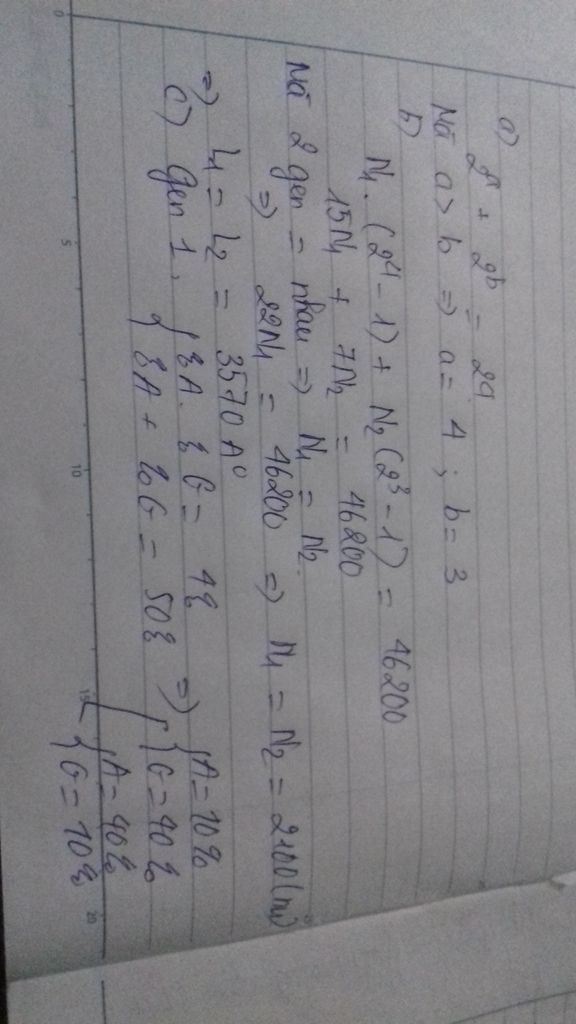 a) 2^a + 2^b = 29
Mà a > b => a = 4 ; b = 3
b)
N1. (2^4 - 1) + N2 (2^3 - 1) = 46200
15N1 + 7N2 = 46200
Mà 2 gen = nhau => N1 = N2.
=> 22N1 = 46200 => N1 = N2 = 2100 (nu)
=> L1 = L2 = 3570 A°
c) gen 1, { %A. %G = 4%
%A + %G = 50% => [ { A = 10%
G = 40%
{ A = 40%
G = 10%
0 5 10 15 20